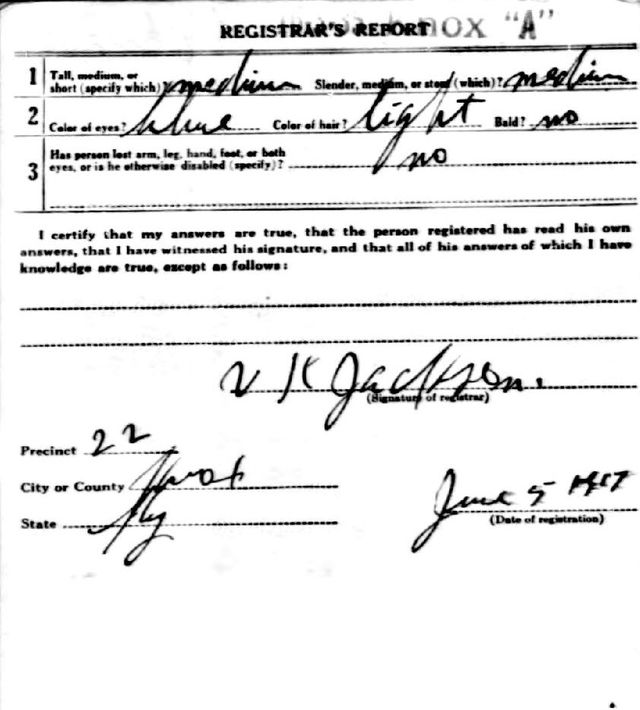 REGISTRAR'S REPORT "A"
1 Tall, medium, or short (specify which)? medium Slender, medium, or stout (which)? medium
2 Color of eyes? blue Color of hair? light Bald? no
3 Has person lost arm, leg, hand, foot, or both
eyes, or is he otherwise disabled (specify)? no
I certify that my answers are true, that the person registered has read his own
answers, that I have witnessed his signature, and that all of his answers of which I have
knowledge are true, except as follows:
V K Jackson.
(Signature of registrar)
Precinct 22
City or County Knox
State Ky
June 5 1917
(Date of registration)